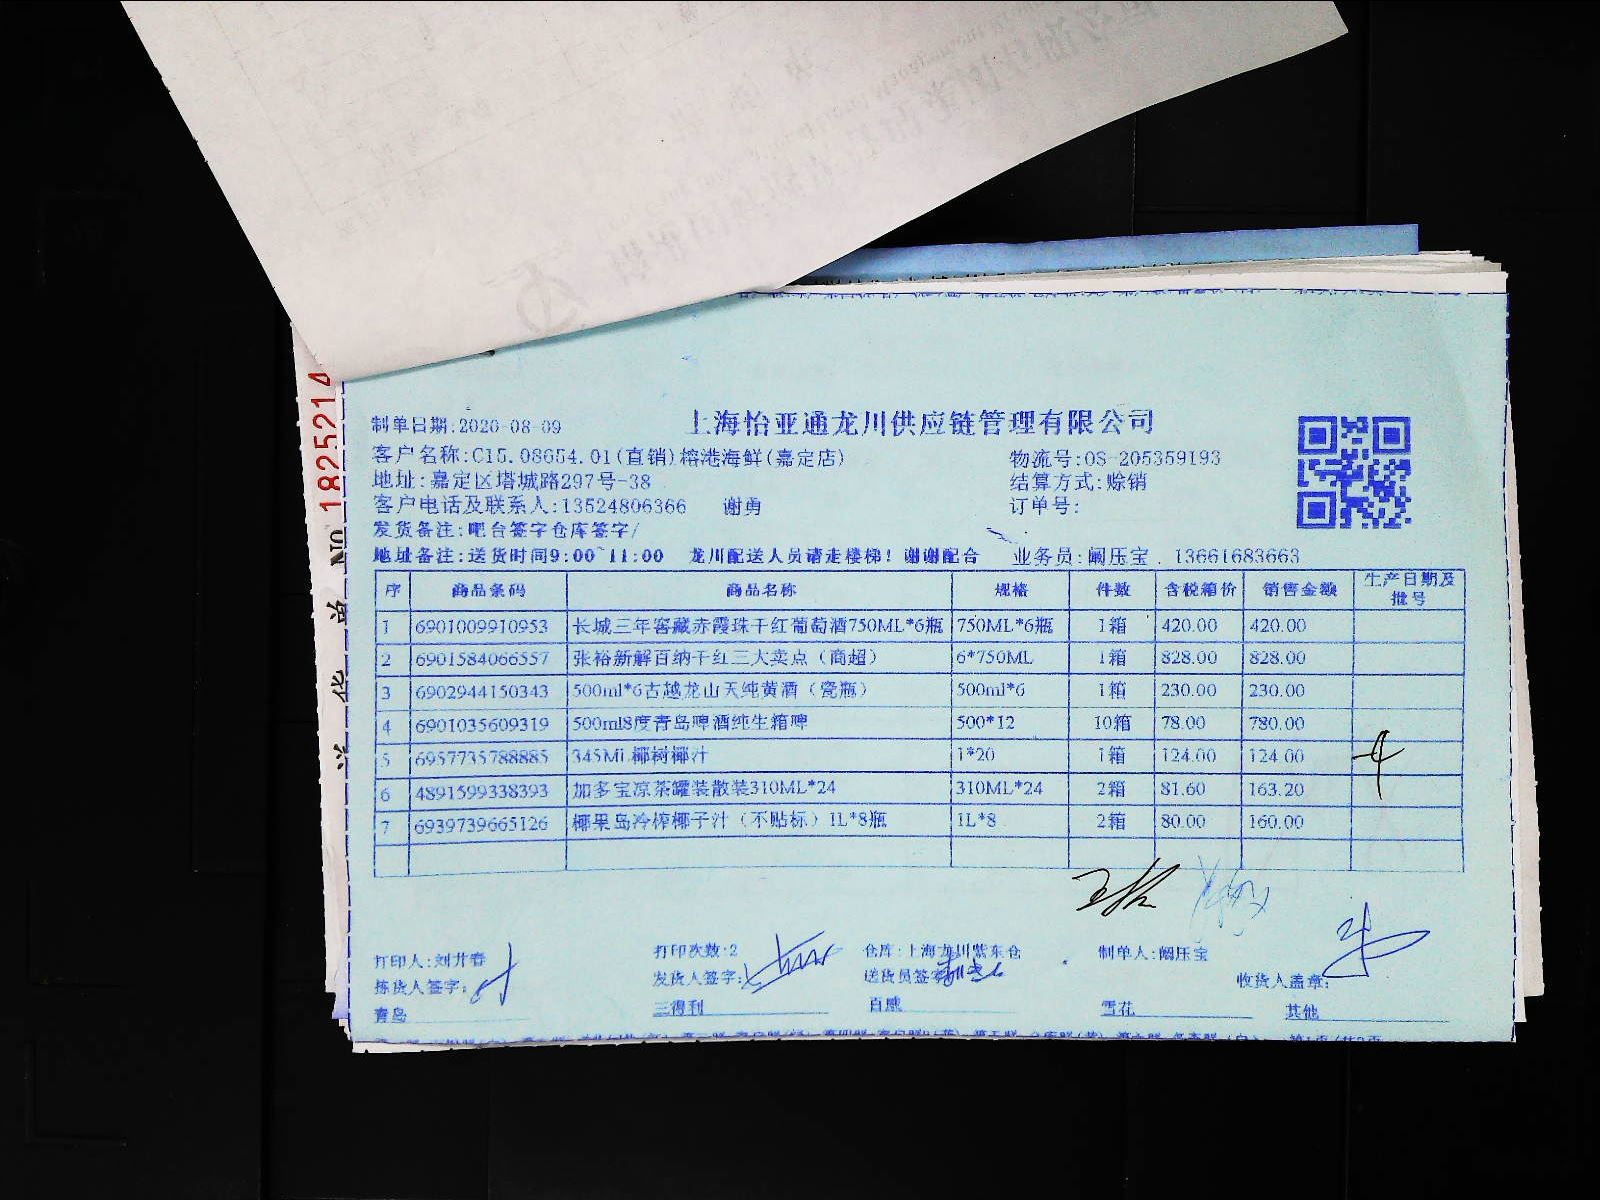 1825214
NO
单
华
兴
制单日期:2020-08-09
上海怡亚通龙川供应链管理有限公司
客户名称:C15.08654.01(直销)榕港海鲜(嘉定店)
物流号:OS-205359193
地址:嘉定区塔城路297号-38
结算方式:赊销
客户电话及联系人:13524806366 谢勇
订单号:
发货备注:吧台签字仓库签字/
地址备注:送货时间9:00~11:00 龙川配送人员请走楼梯！谢谢配合 业务员:阚压宝 . 13661683663
序 商品条码 商品名称 规格 件数 含税箱价 销售金额 生产日期及批号
1 6901009910953 长城三年窖藏赤霞珠干红葡萄酒750ML*6瓶 750ML*6瓶 1箱 420.00 420.00
2 6901584066557 张裕新解百纳干红三大卖点（商超） 6*750ML 1箱 828.00 828.00
3 6902944150343 500ml*6古越龙山天纯黄酒（瓷瓶） 500ml*6 1箱 230.00 230.00
4 6901035609319 500ml8度青岛啤酒纯生箱啤 500*12 10箱 78.00 780.00
5 6957735788885 345ML椰树椰汁 1*20 1箱 124.00 124.00
6 4891599338393 加多宝凉茶罐装散装310ML*24 310ML*24 2箱 81.60 163.20
7 6939739665126 椰果岛冷榨椰子汁（不贴标）1L*8瓶 1L*8 2箱 80.00 160.00
打印人:刘廾春 打印次数:2 仓库:上海龙川紫东仓 制单人:阚压宝
拣货人签字: 发货人签字: 送货员签字 收货人盖章:
青岛 三得利 百威 雪花 其他